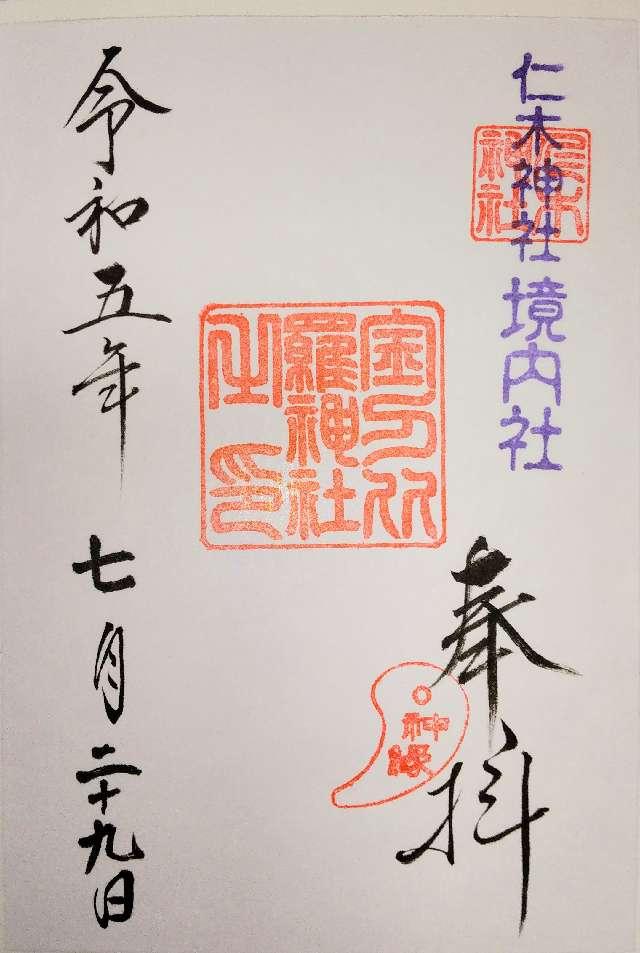 仁木神社境内社
仁木神社
奉拝
神縁
金刀比羅神社之印
令和五年七月二十九日